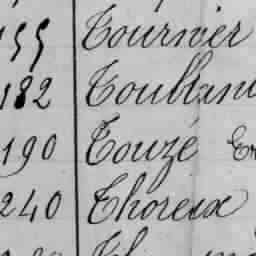 155 Tournier
182 Toullanc
190 Touzé
240 Thoreux